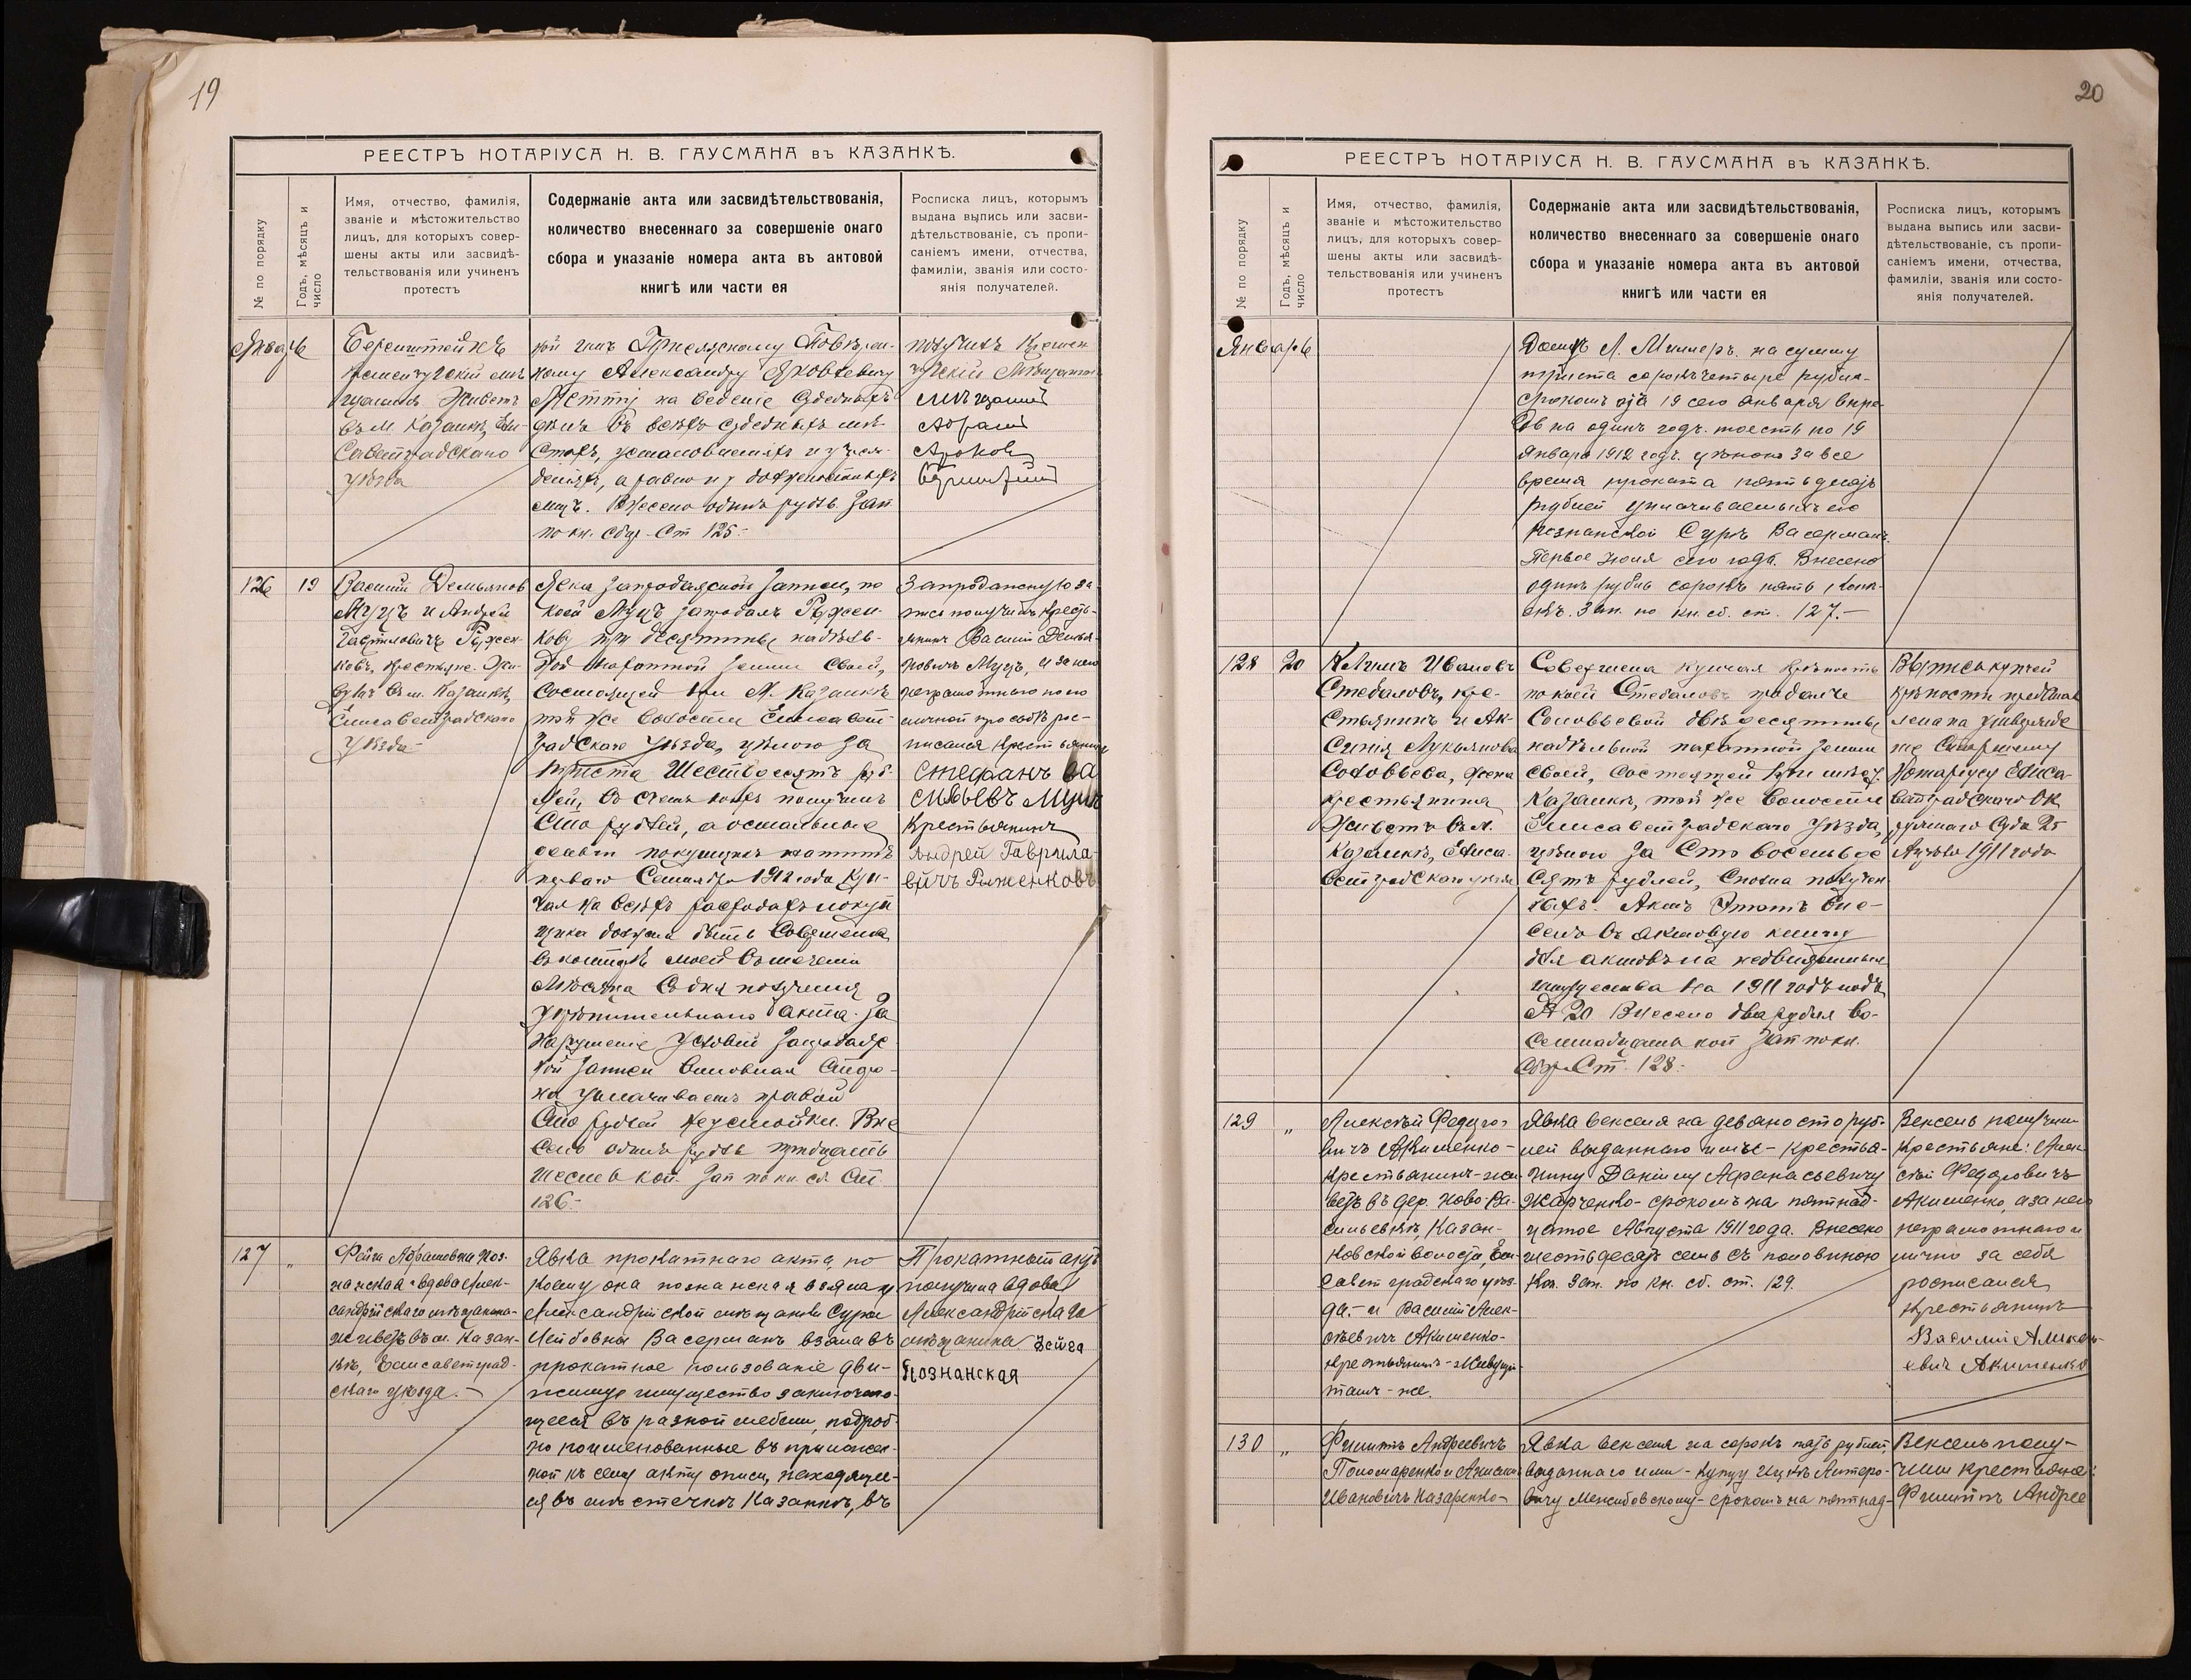 19
РЕЕСТРЪ НОТАРІУСА Н. В. ГАУСМАНА въ КАЗАНКѢ.
№ по порядку
Годъ, мѣсяцъ и
число
Имя, отчество, фамилія,
званіе и мѣстожительство
лицъ, для которыхъ совер-
шены акты или засвидѣ-
тельствованія или учиненъ
протестъ
Содержаніе акта или засвидѣтельствованія,
количество внесеннаго за совершеніе онаго
сбора и указаніе номера акта въ актовой
книгѣ или части ея
Росписка лицъ, которымъ
выдана выпись или засви-
дѣтельствованіе, съ пропи-
саніемъ имени, отчества,
фамиліи, званія или состо-
янія получателей.
Январь
Беренштейнъ
щанинъ Живетъ
въ м. Казанкѣ, Ели-
саветградскаго
уѣзда
ной имъ Присяжному Повѣрен-
ному Александру Яковлевичу
на веденіе судебныхъ
дѣлъ во всѣхъ судебныхъ мѣ-
стахъ, установленіяхъ и учреж-
деніяхъ, а равно и у должностныхъ
лицъ. Внесено одинъ рубль Зап
по кн. сбор. Ст 125.-
получилъ Кремен
чугскій Мѣщанин
Абрамъ
126
19
Василій Демьянов
Муцъ и Андрей
Гавриловичъ Рыжен-
ковъ, крестьяне. Жи-
вутъ въ м. Казанкѣ,
Елисаветградскаго
уѣзда
Явка запродажной записи, по
коей Муцъ запродалъ Рыжен-
кову три десятины надѣль-
ной пахатной земли своей,
состоящей при М. Казанкѣ
той же волости Елисавет-
градскаго уѣзда, цѣною за
триста шестьдесятъ руб-
лей, въ счетъ коихъ получилъ
Сто рублей, а остальные
покупщикъ платитъ
перваго Сентября 1912 года Куп-
чая на
щика должна быть совершена
въ конторѣ моей въ теченіи
мѣсяца со дня полученія
укрѣпительнаго акта. За
нарушеніе условій запродаж-
ной записи виновная сторо-
на уплачиваетъ правой
Сто рублей неустойки. Вне
сено одинъ рубль тридцать
шесть коп. Зап по кн. сб. Ст.
126.-
Запродажную за-
пись получилъ кресть-
янинъ Василій Демья-
новичъ Муцъ, и за него
неграмотнаго по его
личной просьбѣ рос-
писался крестьянинъ
Стефанъ Ва
сильевъ Муцъ
Крестьянинъ
Андрей Гаврила-
вичъ Рыженковъ
127
„
Фейга Абрамовна Поз-
нанская вдова Алек-
сандрійскаго мѣщанина-
живетъ въ м. Казан-
кѣ, Елисаветград-
скаго уѣзда.-
Явка прокатнаго акта, по
коему она познанская взяла у
Александрійской мѣщанки Суры
Лейбовны Васерманъ взяла въ
прокатное пользованіе дви-
жимое имущество заключаю-
щееся въ разной мебели, подроб-
но поименованные въ приложен-
ной къ сему акту описи, находящее-
ся въ мѣстечкѣ Казанкѣ, въ
Прокатный актъ
получила вдова
Александрійскаго
мѣщанина Фейга
Познанская
20
РЕЕСТРЪ НОТАРІУСА Н. В. ГАУСМАНА въ КАЗАНКѢ.
№ по порядку
Годъ, мѣсяцъ и
число
Имя, отчество, фамилія,
званіе и мѣстожительство
лицъ, для которыхъ совер-
шены акты или засвидѣ-
тельствованія или учиненъ
протестъ
Содержаніе акта или засвидѣтельствованія,
количество внесеннаго за совершеніе онаго
сбора и указаніе номера акта въ актовой
книгѣ или части ея
Росписка лицъ, которымъ
выдана выпись или засви-
дѣтельствованіе, съ пропи-
саніемъ имени, отчества,
фамиліи, званія или состо-
янія получателей.
Январь
Домѣ Л. Миллеръ. на сумму
триста сорокъ четыре рубля-
срокомъ отъ 19 сего января впре-
дь на одинъ годъ. тоесть по 19
января 1912 годъ. цѣною за все
время проката пятьдесятъ
рублей уплачиваемыхъ ею
Познанской Сурѣ Васерманъ.
Первое Іюля сего года. Внесено
одинъ рубль сорокъ пять копѣ-
екъ. Зап. по кн. сб. ст. 127.-
128
20
Климъ Ивановъ
Стебаловъ, кре-
стьянинъ и Ак-
синія Лукьянова
Соловьева, жена
крестьянина
Живутъ въ М.
Казанкѣ, Елиса-
ветградскаго уѣзда
Совершена купчая крѣпость
по коей Стебаловъ продалъ
Соловьевой двѣ десятины
надѣльной пахатной земли
своей, состоящей при мѣст.
Казанкѣ, той же волости
Елисаветградскаго уѣзда,
цѣною за Сто восемьде
сятъ рублей, сполна получен
ныхъ. Актъ этотъ вне-
сенъ въ актовую книгу
для актовъ на недвижимыя
имущества на 1911 годъ подъ
№ 20 Внесено два рубля во-
семнадцать коп Зап по кн.
сбор. Ст. 128.-
Выпись купчей
крѣпости представ
лена на утвержде
ніе Старшему
Нотаріусу Елиса-
ветградскаго Ок
ружнаго Суда 25
1911 года
129
„
Алексѣй Федоро-
вичъ Акименко-
крестьянинъ-жи-
ветъ въ дер. Ново-Ва-
сильевкѣ, Казан-
ковской волости, Ели-
саветградскаго уѣз-
да.- и Василій Алек-
сѣевичъ Акименко-
крестьянинъ-живущій
тамъ-же.
Явка векселя на девяносто руб-
лей выданнаго ими - крестья-
нину Данилу Афанасьевичу
Жарченко- срокомъ на пятнад-
цатое Августа 1911 года. Внесено
шестьдесятъ семь съ половиною
Коп. Зап. по кн. сб. ст. 129.
Вексель получили
крестьяне: Алек-
сѣй Федоровичъ
Акименко, а за него
неграмотнаго и
лично за себя
росписался
Крестьянинъ
Василій Алексѣ-
евич Акименко
130
„
Филиппъ Андреевичъ
Пономаренко и
Ивановичъ Назаренко-
Явка векселя на сорокъ пять рублей,
выданнаго ими - купцу Ицкѣ
вичу Межибовскому- срокомъ на пятнад-
Вексель полу-
чили крестьяне:
Филиппъ Андрее